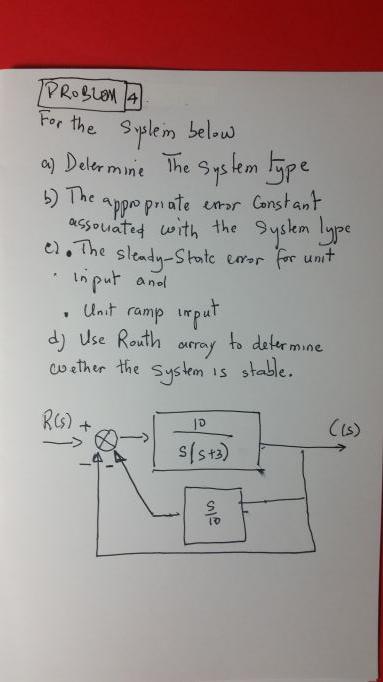 PROBLEM 4
For the System below
a) Determine The System Type
b) The appropriate error Constant
associated with the System Type
c) • The steady-State error for unit
input and
• Unit ramp input
d) Use Routh array to determine
wether the System is stable.
R(s) + 10 C(s)
S(s+3)
- -
S
10